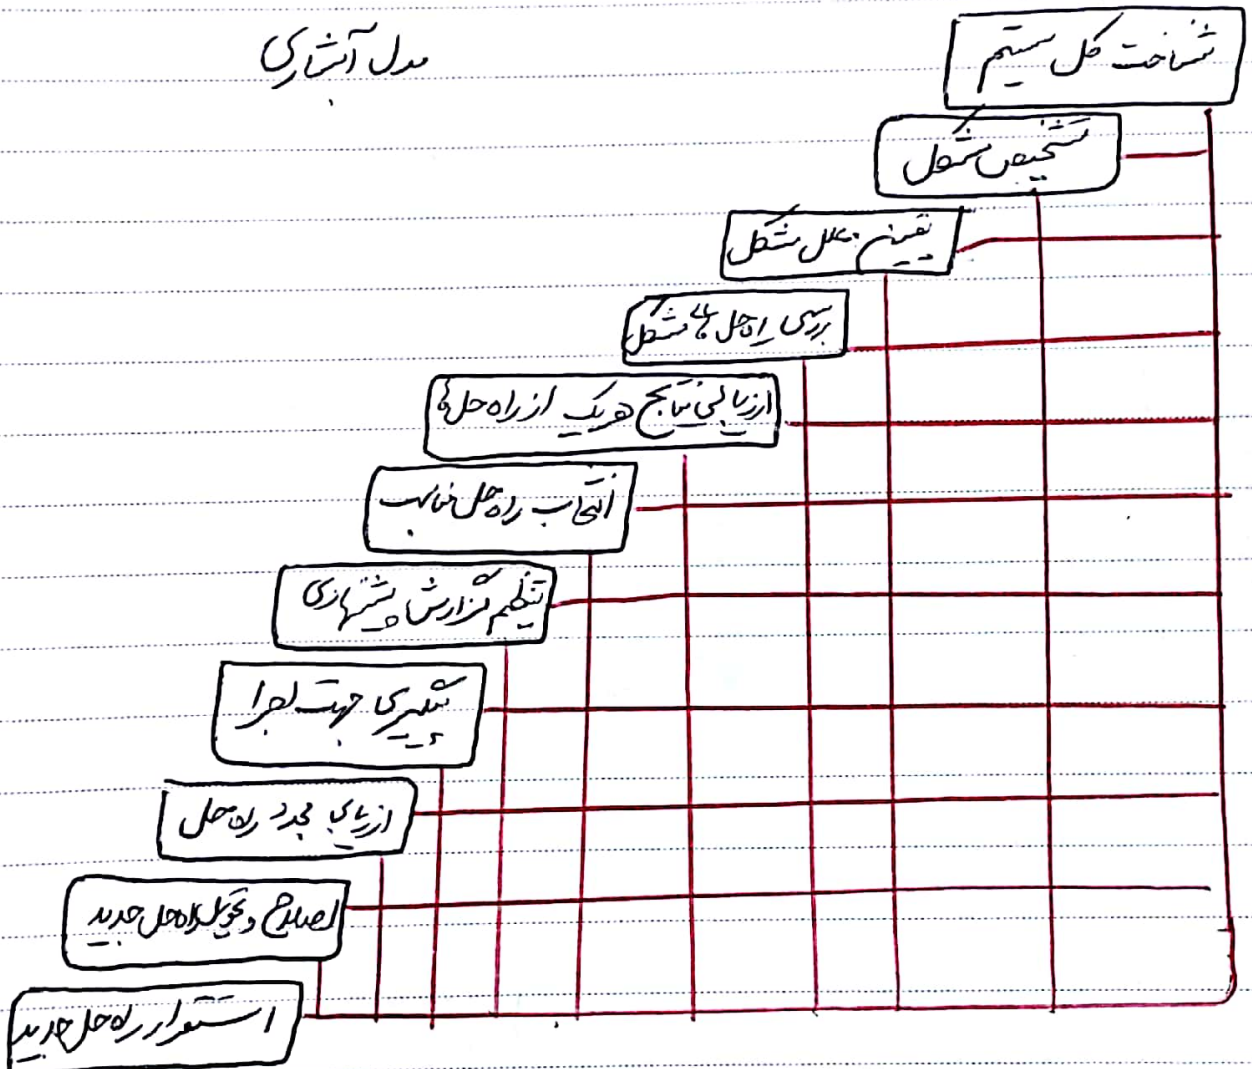 مدل آبشاری
شناخت کل سیستم
تشخیص مشکل
تعیین علل مشکل
بررسی راه حل های مشکل
ارزیابی نتایج هر یک از راه حل ها
انتخاب راه حل مناسب
تنظیم گزارش پیشنهادی
پیگیری جهت اجرا
ارزیابی مجدد راه حل
اصلاح و تحویل راه حل جدید
استقرار راه حل جدید